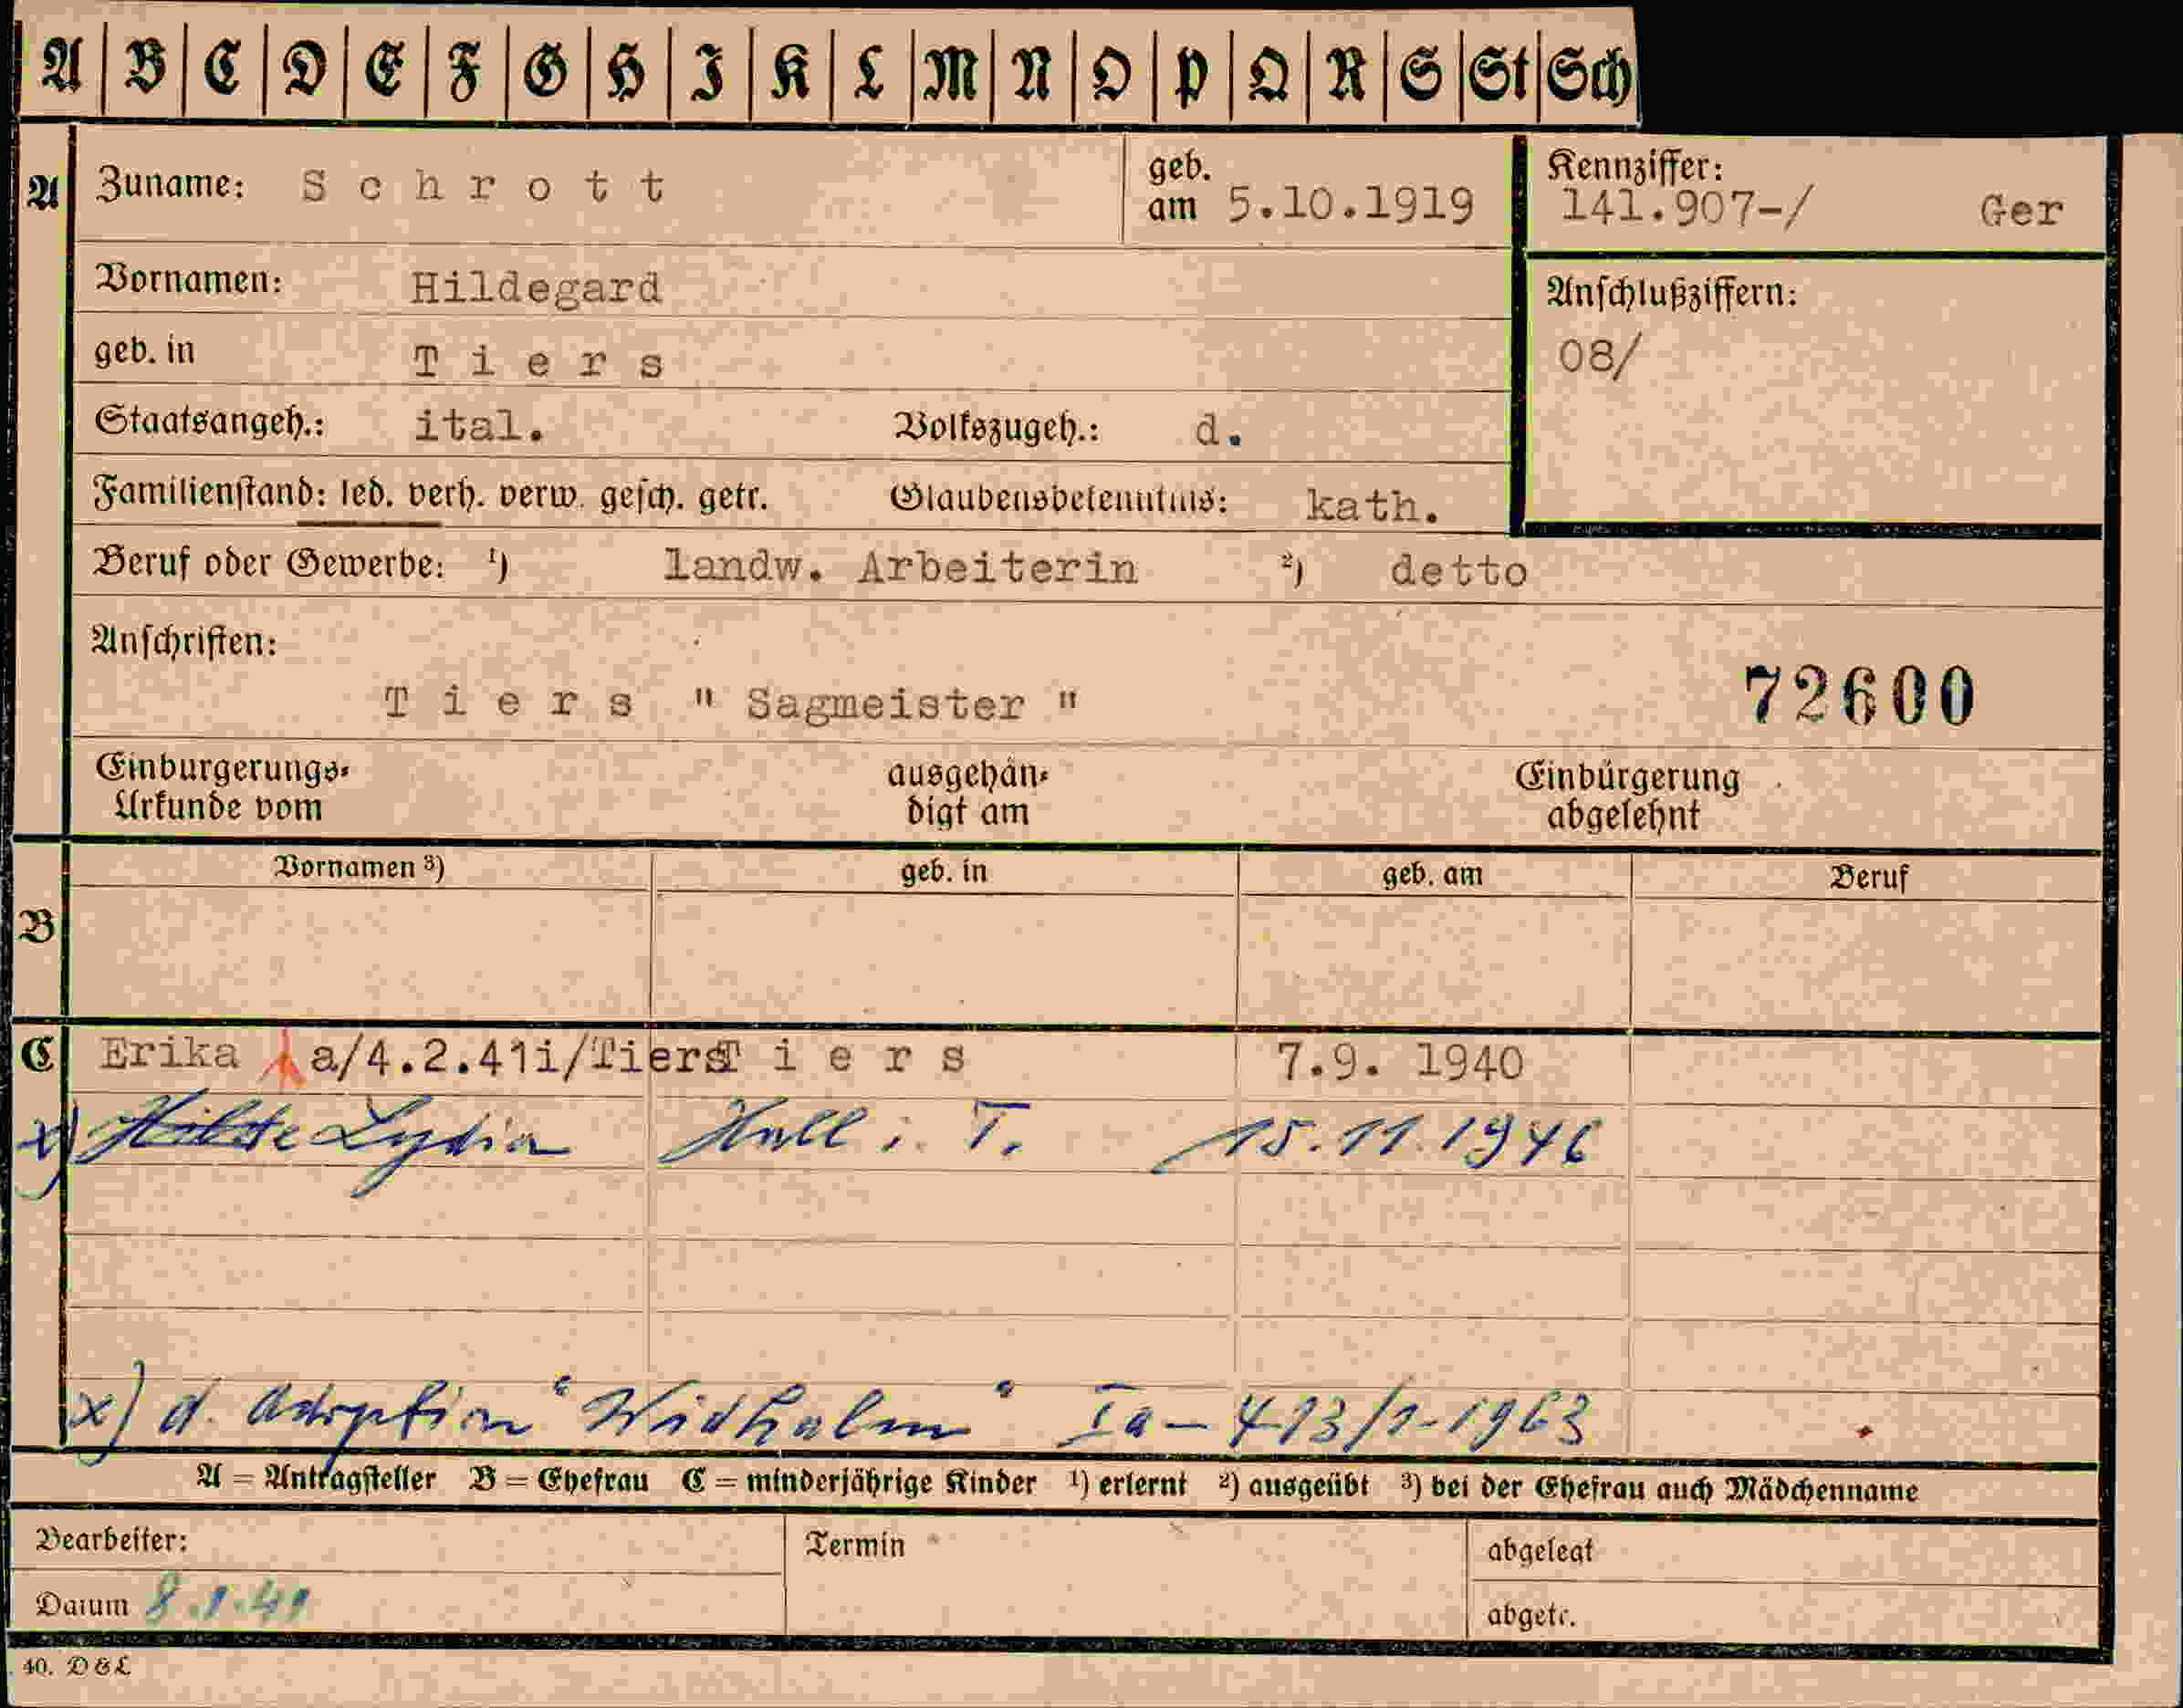 A B C D E F G H I K L M N O P Q R S St Sch
A Zuname: Schrott geb. am 5.10.1919 Kennziffer: 141.907-/ Ger
Vornamen: Hildegard Anschlußziffern:
geb. in Tiers 08/
Staatsangeh.: ital. Volkszugeh.: d.
Familienstand: led. verh. verw. gesch. getr. Glaubensbekenntnis: kath.
Beruf oder Gewerbe: ¹) landw. Arbeiterin ²) detto
Anschriften:
Tiers " Sagmeister " 72600
Einbürgerungs- ausgehän- Einbürgerung
Urkunde vom digt am abgelehnt
Vornamen ³) geb. in geb. am Beruf
B
C Erika a/4.2.41i/Tiers Tiers 7.9. 1940
x) Hilde Lydia Hall i. T. 15.11.1946
x) d. Adoption "Widhalm" Ia-413/1-1963
A = Antragsteller B = Ehefrau C = minderjährige Kinder ¹) erlernt ²) ausgeübt ³) bei der Ehefrau auch Mädchenname
Bearbeiter: Termin abgelegt
Datum 8.1.41 abgetr.
40. D&L